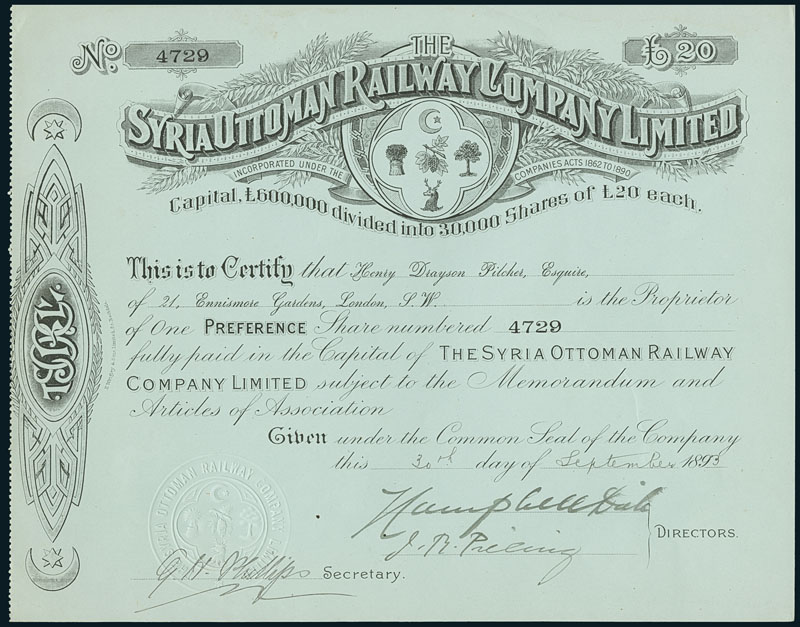 No. 4729
£20
THE
SYRIA OTTOMAN RAILWAY COMPANY LIMITED
INCORPORATED UNDER THE COMPANIES ACTS 1862 TO 1890
Capital, £600,000 divided into 30,000 Shares of £20 each.
This is to Certify that Henry Drayson Pilcher, Esquire,
of 21, Ennismore Gardens, London, S.W. is the Proprietor
of One PREFERENCE Share numbered 4729
fully paid in the Capital of THE SYRIA OTTOMAN RAILWAY
COMPANY LIMITED subject to the Memorandum and
Articles of Association
Given under the Common Seal of the Company
this 30th day of September 1893
SYRIA OTTOMAN RAILWAY COMPANY
J. R. Pilling
DIRECTORS.
G. H. Phillips Secretary.